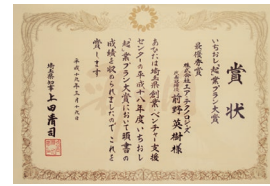 賞状
いちおし起業プラン大賞
最優秀賞
株式会社エア・テクロンズ
代表取締役 前野英樹様
あなたは埼玉県創業・ベンチャー支援
センターの平成十八年度いちおし
起業プラン大賞において頭書の
成績を収められましたのでこれを
賞します
平成十九年三月十九日
埼玉県知事 上田清司